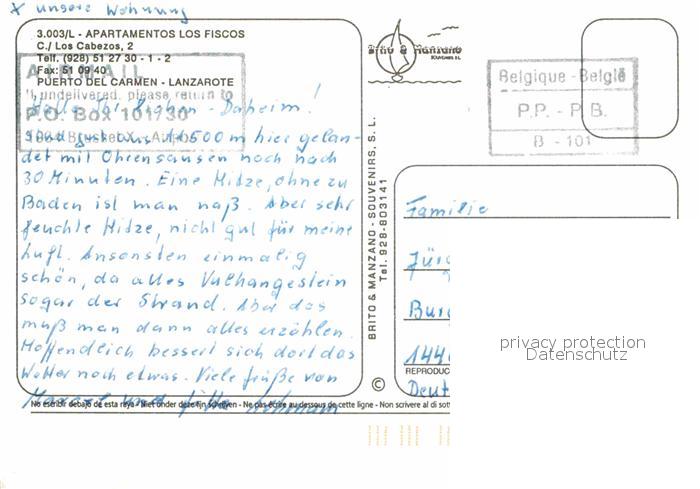 x unsere Wohnung
3.003/L - APARTAMENTOS LOS FISCOS
C./ Los Cabezos, 2
Telf. (928) 51 27 30 - 1 - 2
Fax: 51 09 40
PUERTO DEL CARMEN - LANZAROTE
AIR MAIL
"If undelivered, please return to
P.O. Box 101730
Hallo Ihr Daheim!
Sind gut aus 11500 m hier gelan-
det mit Ohrensausen noch nach
30 Minuten. Eine Hitze, ohne zu
Baden ist man naß. Aber sehr
feuchte Hitze, nicht gut für meine
Luft. Ansonsten einmalig
schön, da alles Vulkangestein
sogar der Strand. Aber das
muß man dann alles erzählen.
Hoffendlich bessert sich dort das
Wetter noch etwas. Viele Grüße von
und
No escribir debajo de esta raya - Niet onder deze lijn schrijven - Ne pas écrire au dessous de cette ligne - Non scrivere al di sot
Brito & Manzano
SOUVENIRS S.L.
BRITO & MANZANO - SOUVENIRS, S. L.
Tel. 928-803141
©
Belgique - België
P.P. - P.B.
B - 101
Familie
Jürg
Burg
144
REPRODUC
Deut
privacy protection
Datenschutz